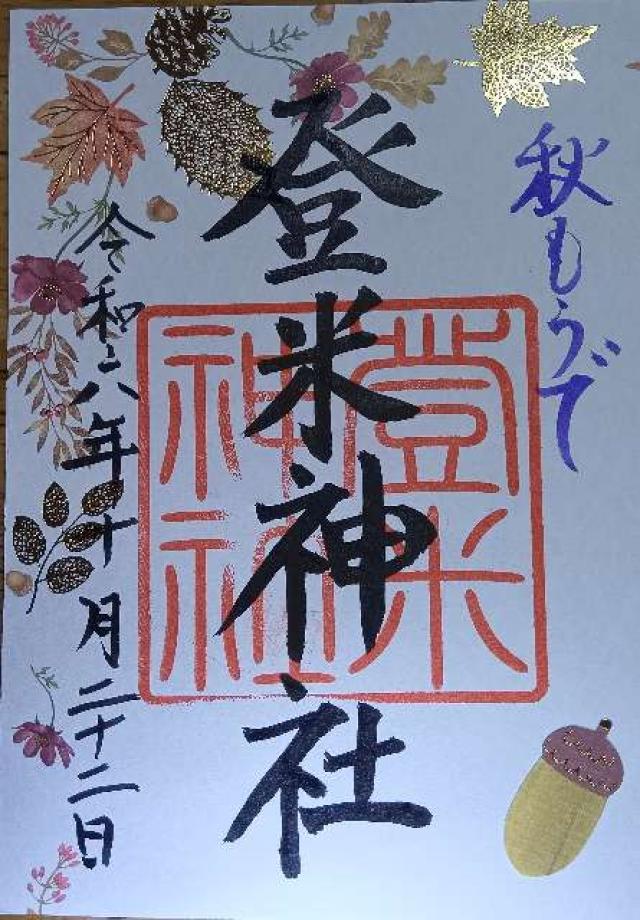 秋もうで
登米神社
登米
神社
令和六年十月二十二日